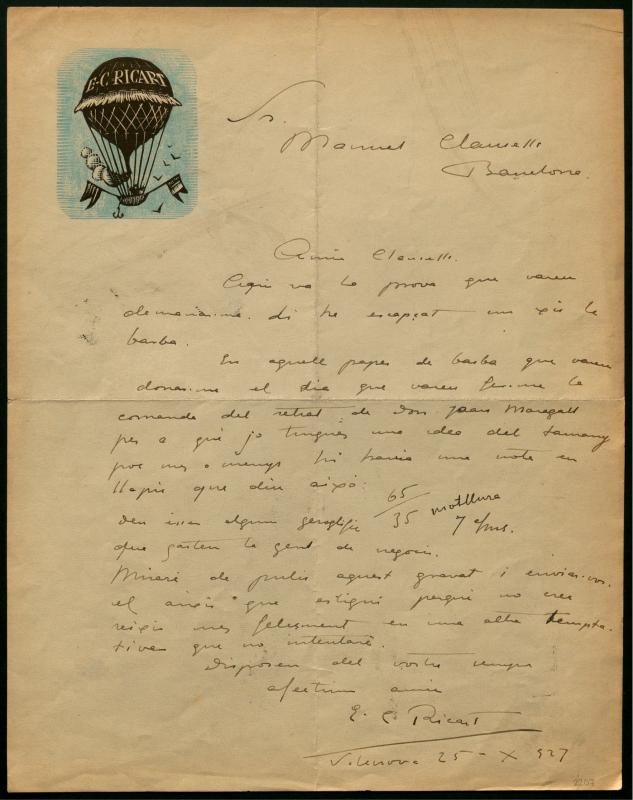 E-C RICART
Sr.
Manuel Clausells
Barcelona.
Amic Clausells.
Aquí va la prova que vareu
demanar-me. Li he escapçat un xic la
barba.
En aquell paper de barba que vareu
donar-me el dia que vareu fer-me la
comanda del retrat de Don Joan Maragall
per a què jo tingués una idea del tamany
poc mes o menys hi havia una nota en
llapis que diu això:
65/35 motllura 7 cms.
Deu esser algun geroglífic
que gasten la gent de negocis.
Miraré de pulir aquest gravat i enviar-vos
el així que estigui perquè no crec
reixir mes feliçment en una altra tempta-
tiva que no intentaré.
Disposeu del vostre sempre
afectíssim amic
E. C. Ricart
Vilanova 25-X 927
2207